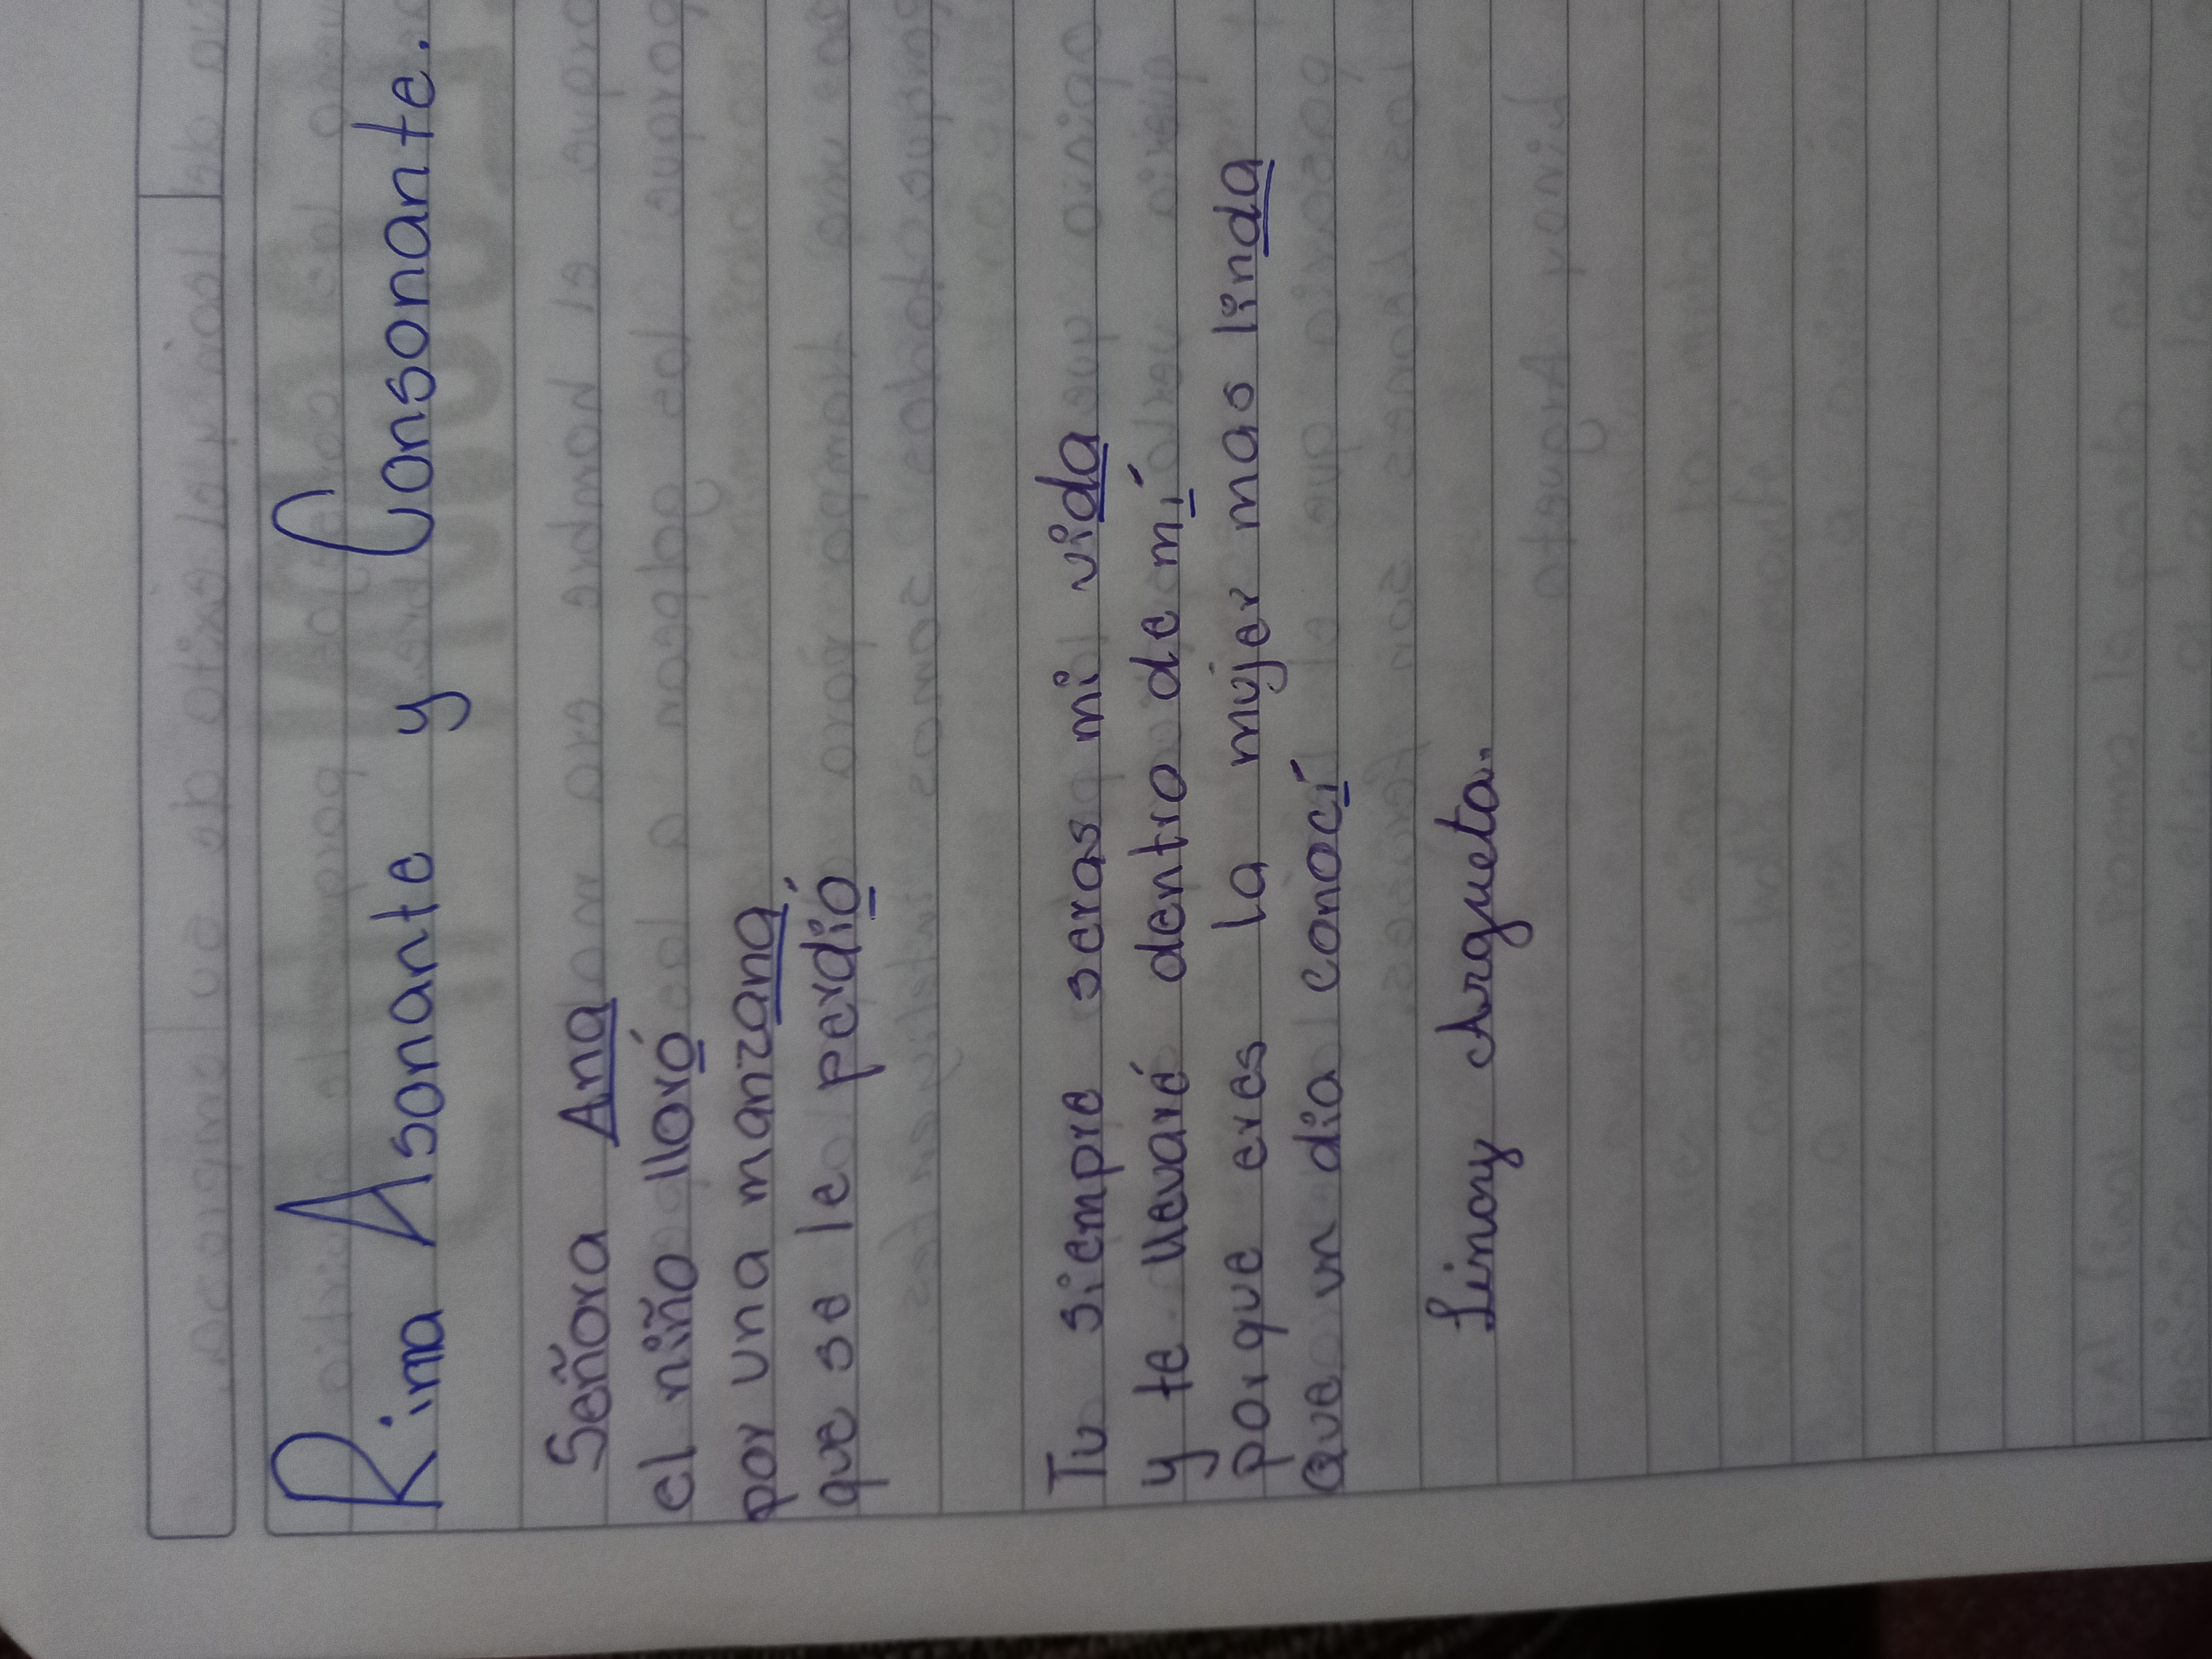 Rima Asonante y Consonante.
Señora Ana
el niño lloró
por una manzana,
que se le perdió
Tu siempre seras mi vida
y te llevaré dentro de mí
porque eres la mujer mas linda
Que un dia conocí
Linoy Argueta.